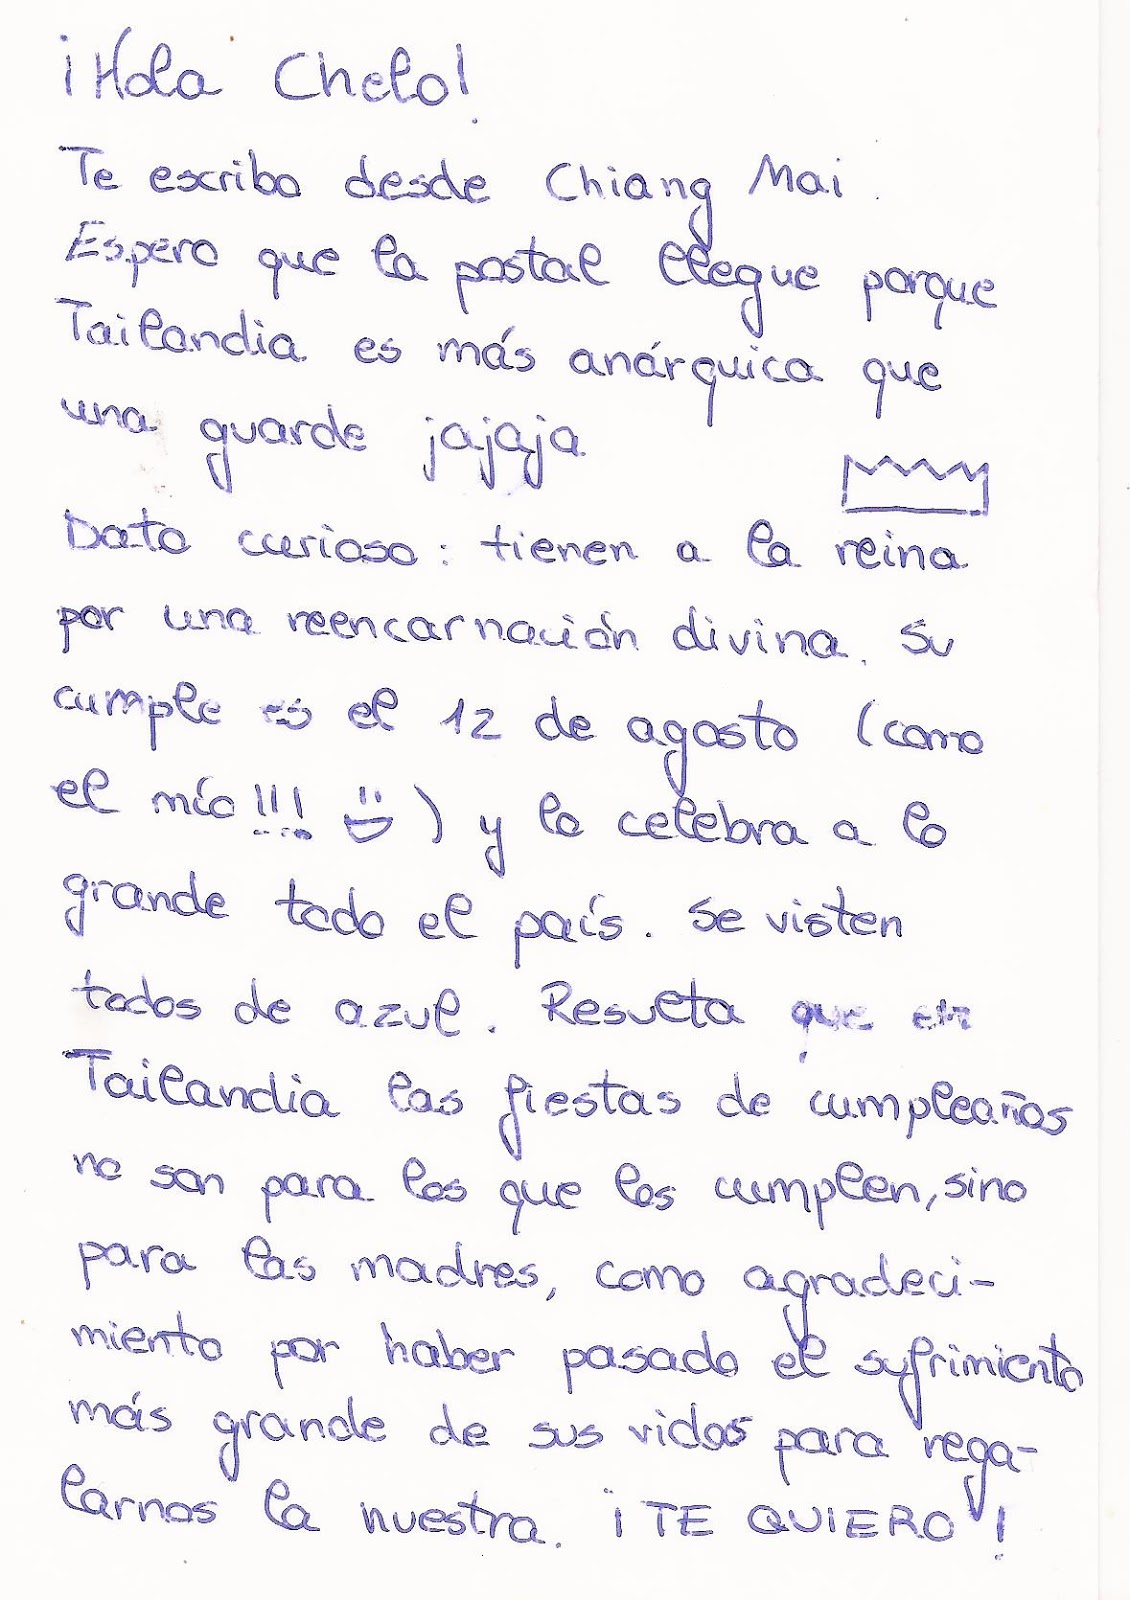 ¡Hola Chelo!
Te escribo desde Chiang Mai.
Espero que la postal llegue porque
Tailandia es más anárquica que
una guarde jajaja
Dato curioso: tienen a la reina
por una reencarnación divina. Su
cumple es el 12 de agosto (como
el mío!!! ) y lo celebra a lo
grande todo el país. Se visten
todos de azul. Resulta que en
Tailandia las fiestas de cumpleaños
no son para los que los cumplen, sino
para las madres, como agradeci-
miento por haber pasado el sufrimiento
más grande de sus vidas para rega-
larnos la nuestra. ¡TE QUIERO!